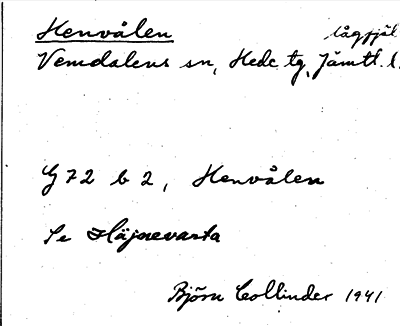 Henvålen lågfjäl
Vemdalens sn, Hede tg, Jämtl. l.
G 72 b 2, Henvålen
Se Häjnevarta
Björn Collinder 1941